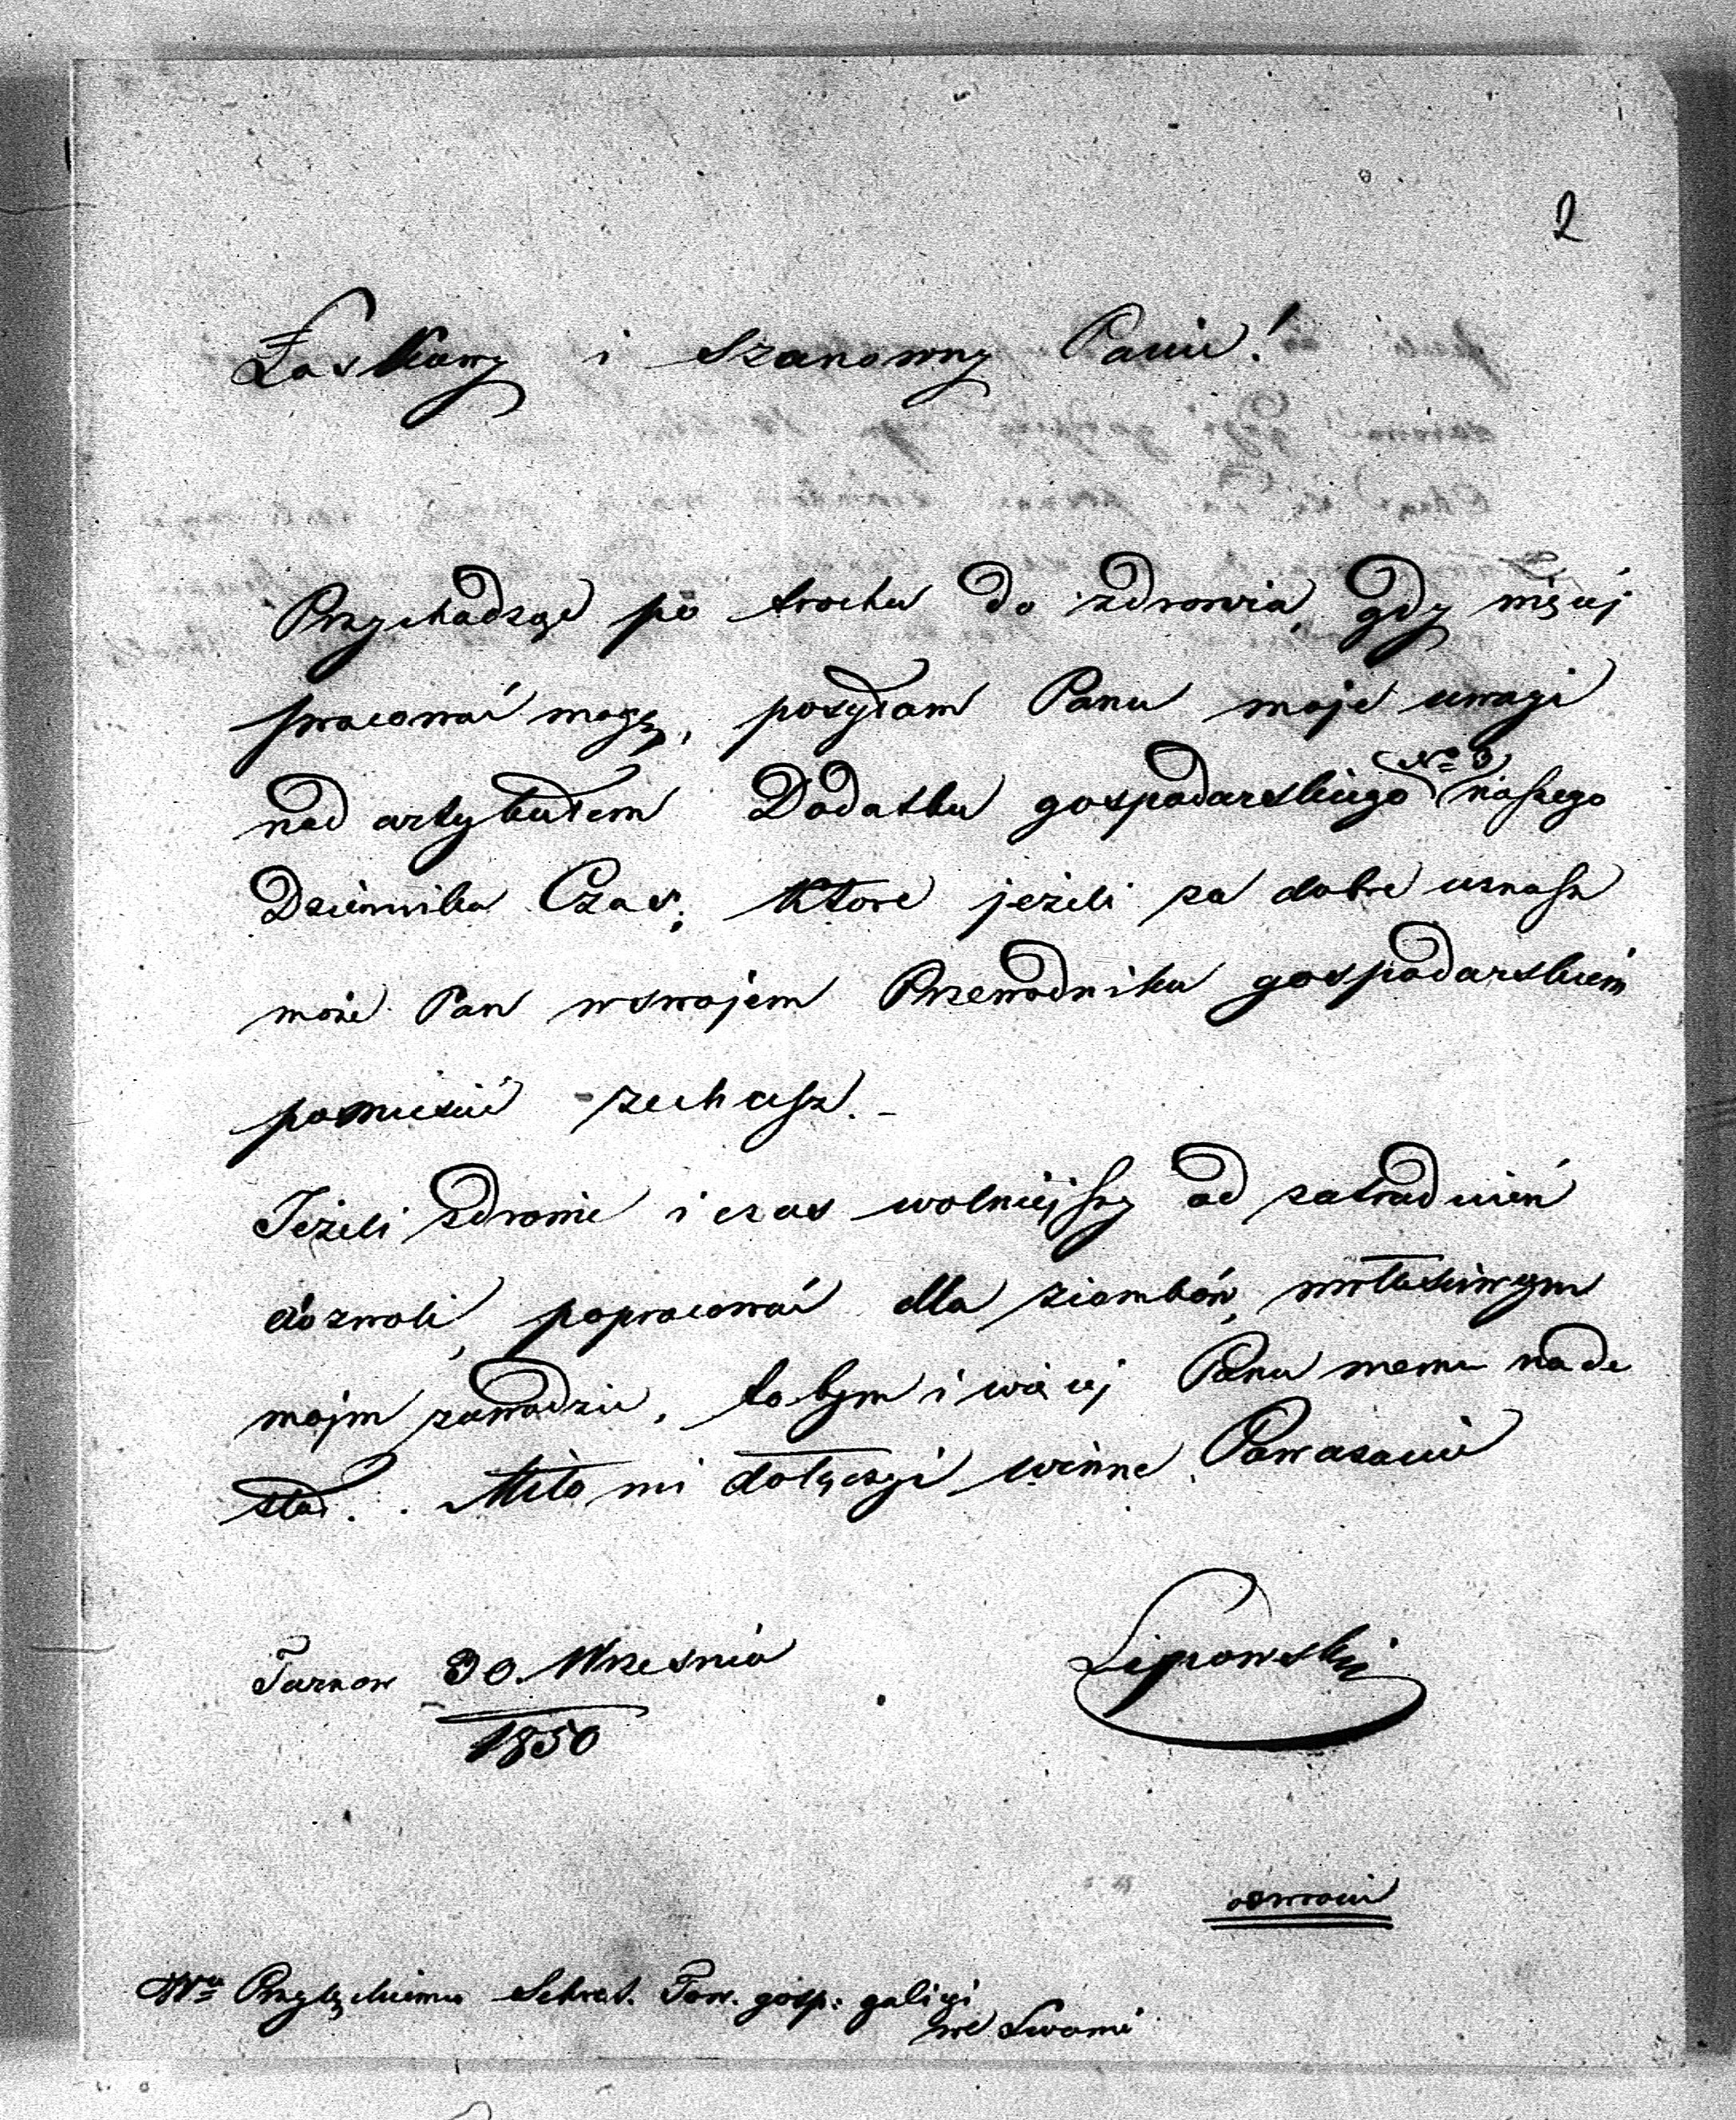 2
Łaskawy i szanowny Panie!
Przychodząc po trochu do zdrowia, gdy więcej
pracować mogę, posyłam Panu moje uwagi
nad artykułem Dodatku gospodarskiego (No 3) naszego
Dziennika Czas; które jeżeli za dobre uznasz
może Pan wswojem Przewodniku gospodarskiem
pomieścić zechcesz.-
Jeżeli zdrowie i czas wolniejszy od zatrudnień
dozwoli, popracować dla ziomków, wwłaściwym
mojm zawodzie, to bym i więcej Panu memu nade
słał. Miło mi dołączyć winne Poważanie
Tarnow 30. Września
1850
Lipowski
odwrocić
Wu Przyłęckiemu Sekret. Tow. gosp: galicyi
we Lwowie